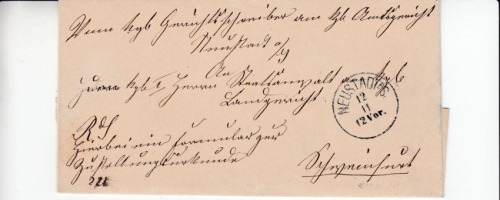 Vom kgl Gerichtsschreiber am kgl Amtsgericht
Neustadt a/S
An
Herrn kgl I Herrn Staatsanwalt kgl
Landgericht
NEUSTADT
12
11
12 Vor.
RdS
Hierbei ein Formular zur
Zustellungsurkunde
Schweinfurt